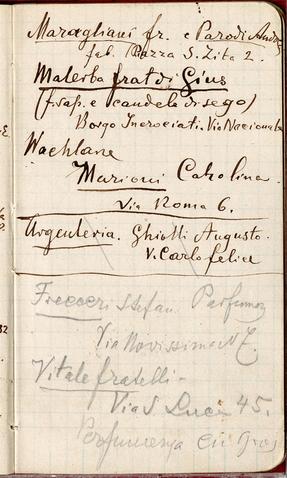 Maragliani fr. e Parodi Andr
fab. Piazza S. Zita 2.
Malerba frat di Gius
(f sap. e candele di sego)
Borgo Incrociati. Via Nazionale
Wachlane
Marioni Carolina.
Via Roma 6.
Argenteria. Ghiotti Augusto.
V. Carlo felice
Stefan. Parfumer
Via Novissima N 7.
Vitale fratelli -
Via S Luca 45.
en Gros